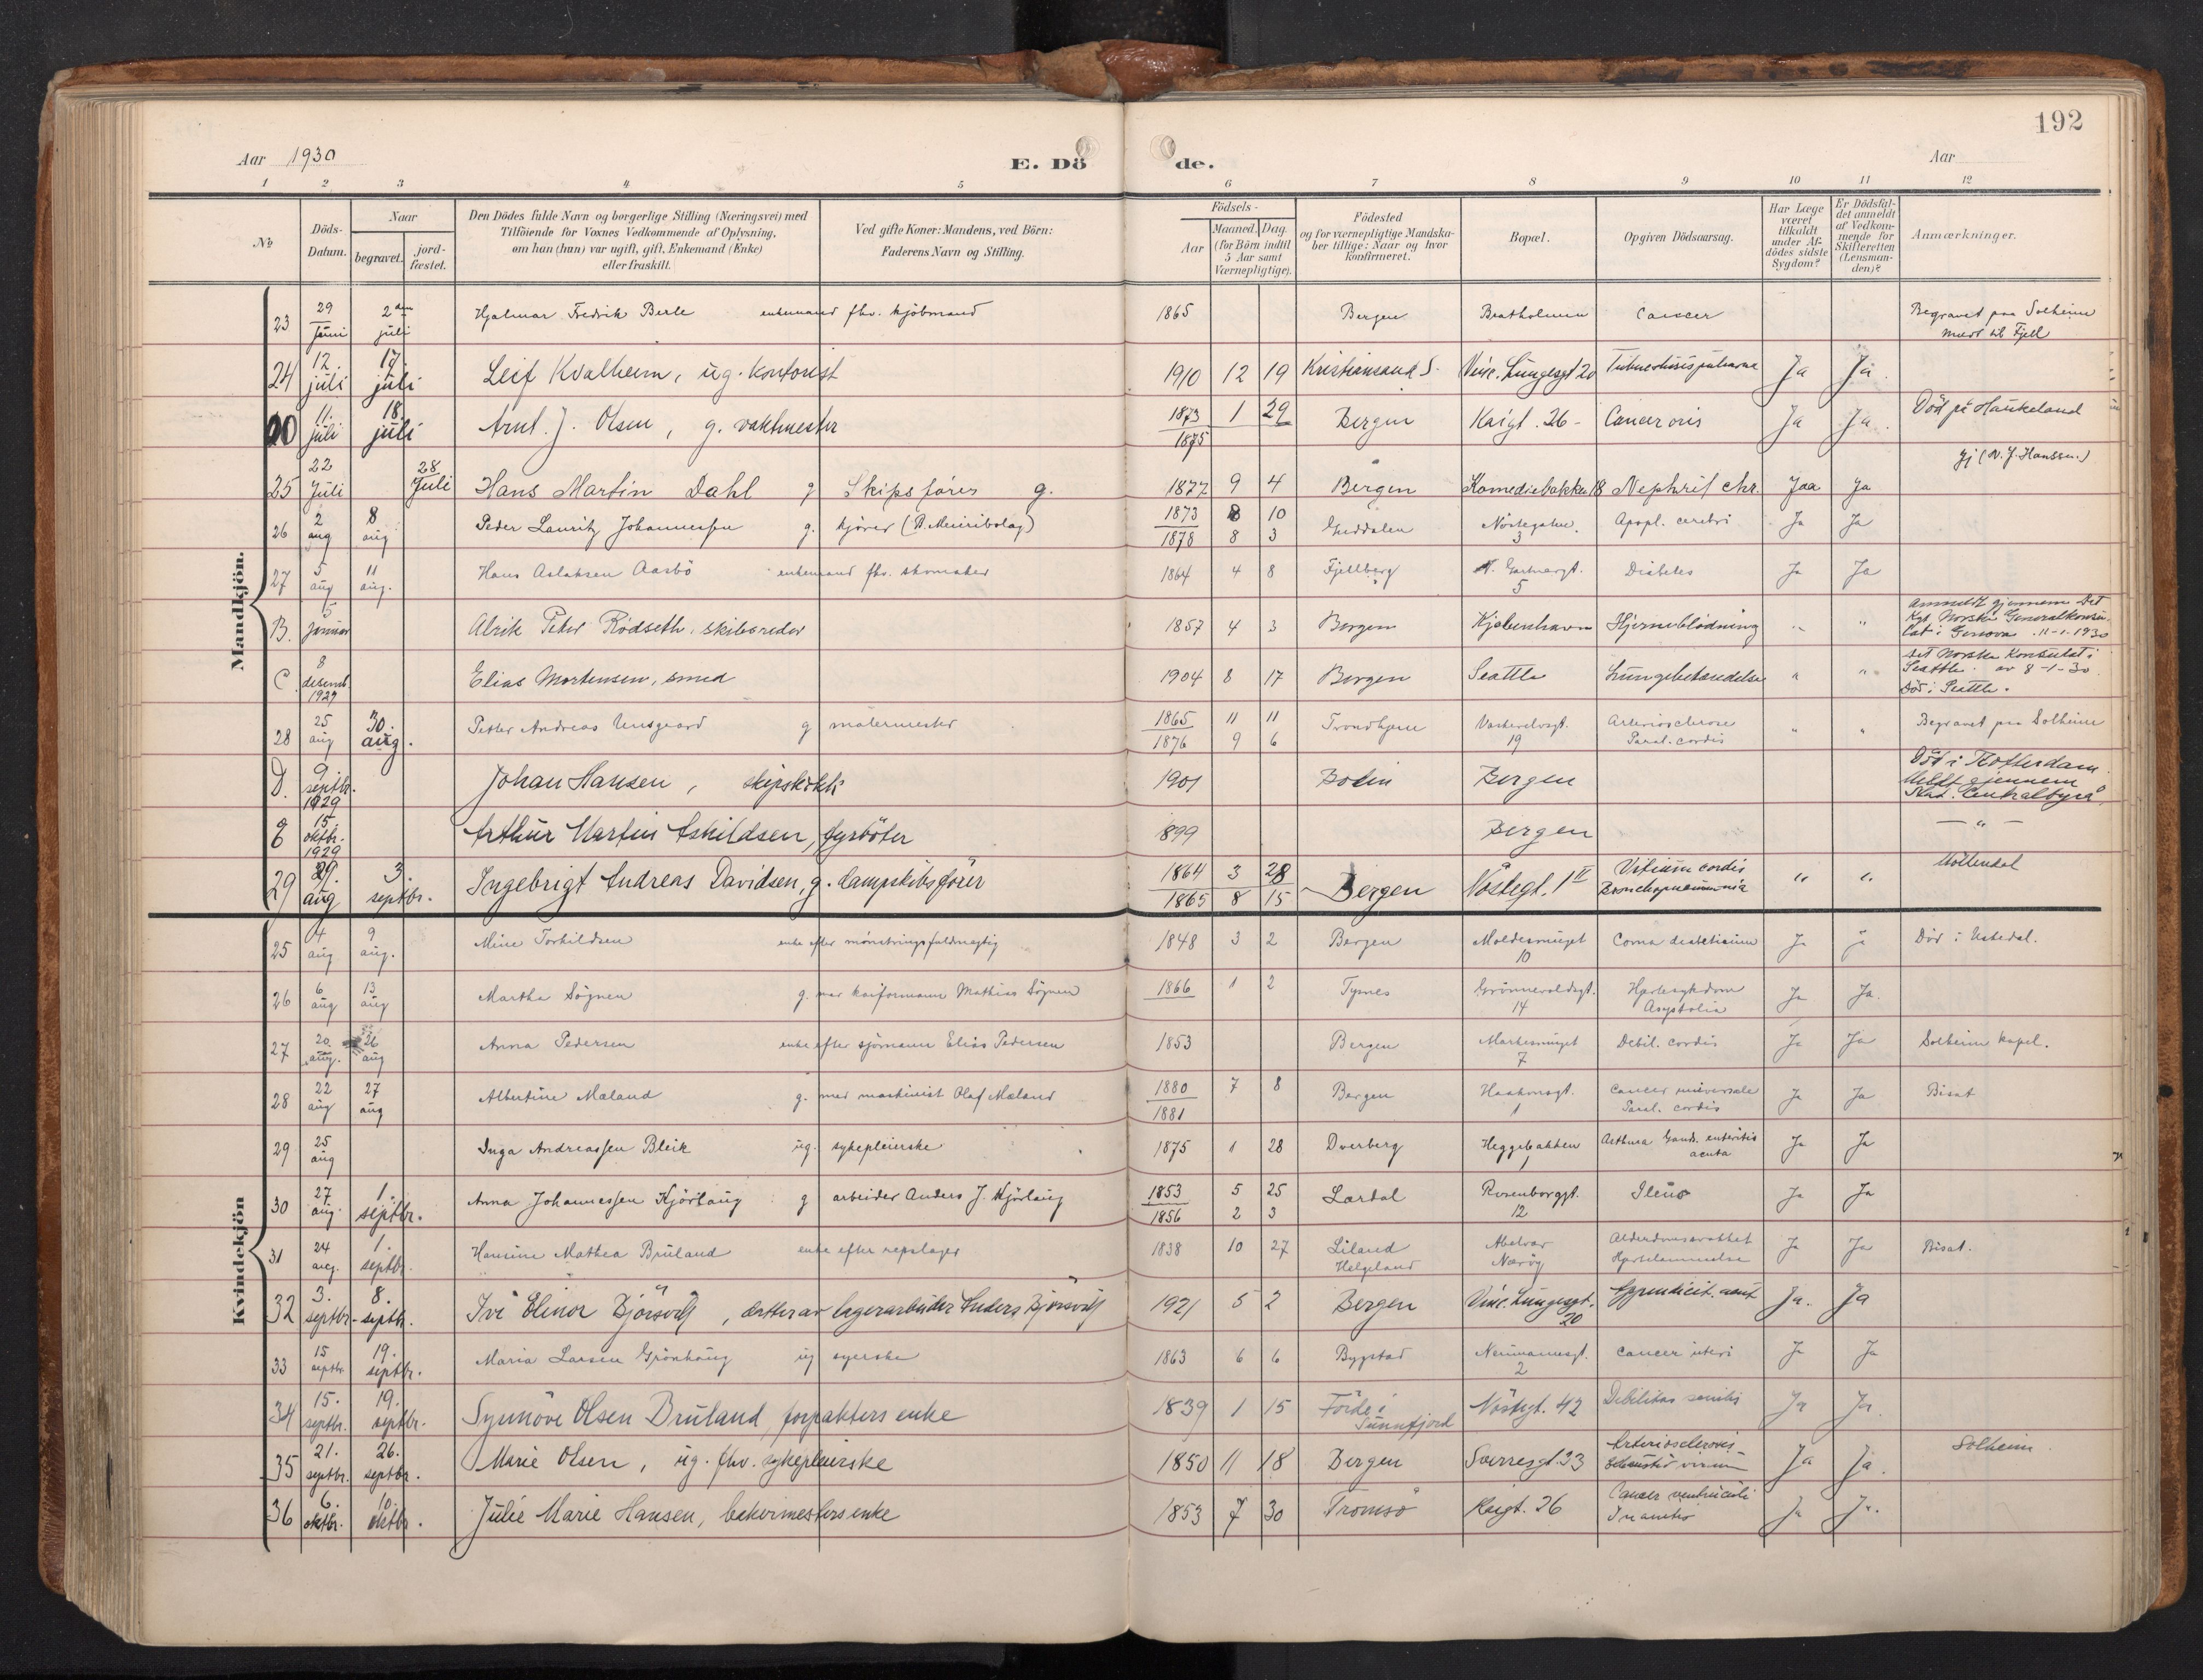 192
Aar 1930
E. Dö de.
Aar
1 2 3 4 5 6 7 8 9 10 11 12
No
Döds-Datum.
Naar
begravet.
jord-fæstet.
Den Dödes fulde Navn og borgerlige Stilling (Næringsvei) med
Tilföiende for Voxnes Vedkommende af Oplysning,
om han (hun) var ugift, gift, Enkemand (Enke)
eller fraskilt.
Ved gifte Koner: Mandens, ved Börn:
Faderens Navn og Stilling.
Födsels-
Aar
Maaned. Dag.
(for Börn indtil
5 Aar samt
Værnepligtige).
Födested
og for værnepligtige Mandska-
ber tillige: Naar og hvor
konfirmeret.
Bopæl.
Opgiven Dödsaarsag.
Har Læge
været
tilkaldt
under Af-
dödes sidste
Sygdom?
Er Dödsfal-
det anmeldt
af Vedkom-
mende for
Skifteretten
(Lensman-
den)?
Anmærkninger.
Mandkjön.
23 29 juni 2 juli Hjalmar Fredrik Berle enkemand fhv. kjöbmand 1865 Bergen Bratholmen Cancer Begravet paa Solheim
24 12. juli 17. juli Leif Kvalheim, ug. kontorist 1910 12 19 Kristiansand S. Vinc. Lungesgt 20 Ja Ja
11. juli 18. juli Arnt. J. Olsen, g. vaktmester 1873 1875 1 29 Bergen Kaigt. 26 Cancer oris Ja Ja. Död på Haukeland
25 22 Juli 28 Juli Hans Martin Dahl g Skipsförer g. 1877 9 4 Bergen Komediebakken 18 Nephrit chr. Jaa Ja gj (N. J. Hanssen.)
26 2 aug 8 aug Peder Lauritz Johannessen g. kjörer (B. Meieribolag) 1873 1878 8 10 8 3 Nöstegaten 3 Apopl. cerebri Ja Ja
27 5 aug 11 aug. Hans Aslaksen Aasbö enkemand fhv. skomaker 1864 4 8 Fjellberg 5 Diabetes Ja Ja
B. 5 januar Alrik Peter Rödseth, skibsreder 1857 4 3 Bergen Kjöbenhavn Hjerneblödning " " Anmeldt gjennem Det Kgl. Norske Generalkonsulat i Genova 11-1-1930
C. 8 desemb. 1929 Elias Mortensen, smed 1904 8 17 Bergen Seattle Lungebetændelse " " Det Norske Konsulat i Seattle av 8-1-30. Död i Seattle.
28 25 aug 30. aug. Petter Andreas g malermester 1865 1876 11 11 9 6 Trondhjem 19 Arteriosclerose Paral. cordis " " Begravet paa Solheim
D. 9. septbr. 1929 Johan Hansen, skipskokk 1901 Bodin Bergen Död i Rotterdam. Meldt gjennem Stat. Centralbyrå
E 15. oktbr. 1929 Arthur Martin Askildsen, fyrböter 899 Bergen — " —
29 29. aug 3. septbr. Ingebrigt Andreas Davidsen, g. dampskibsförer 1864 1865 3 28 8 15 Bergen Nöstegt. 1 II Vitium cordis Bronchopneumonia " " Möllendal
Kvindekjön
25 4 aug 9 aug. Mine Torkildsen enke efter mönstringsfuldmegtig 1848 3 2 Bergen Moldesmuget 10 Coma diabeticum Ja
26 6 aug 13 aug Martha Sögnen g. med kaiformann Mathias Sögnen 1866 1 2 Tysnes Grönnevoldsgt. 14 Hjertesykdom Asystolia Ja Ja.
27 20. aug. 26 aug Anna Pedersen enke efter sjömann Elias Pedersen 1853 Bergen Markesmuget 7 Debil. cordis Ja Ja Solheim kapel.
28 22 aug 27 aug Albertine Mæland g. med maskinist Olaf Mæland 1880 1881 7 8 Bergen Haakonsgt. 1 Cancer universale Paral. cordis Ja Ja Bisat
29 25 aug Inga Andreassen Bleik ug. sykepleierske 1875 1 28 Dverberg Heggebakken 1 Asthma enteritis acuta Ja Ja
30 27 aug. 1. septbr. Anna Johannessen Kjörlaug g arbeider Anders J. Kjörlaug 1853 1856 5 25 2 3 Lærdal Rosenborggt. 12 Ileus Ja Ja
31 24 aug. 1. septbr. Hansine Mathea Bruland enke efter repslager 1838 10 27 Liland Helgeland Abelvær Næröy Alderdomssvakhet Hjertelammelse Ja Ja Bisat.
32 3. septbr. 8. septbr. Elinor Björsvik, datter av lagerarbeider Anders Björsvik 1921 5 2 Bergen Vinc. Lungesgt. 20 Appendicit. acut Ja. Ja
33 15 septbr. 19. septbr. Maria Larsen Grönhaug ug syerske 1863 6 6 Bygstad Neumannsgt. 2 Cancer uteri Ja Ja
34 15. septbr. 19. septbr. Synnöve Olsen Bruland, forpakters enke 1839 1 15 Förde i Sunnfjord Nöstegt. 42 Debilitas senilis Ja Ja.
35 21. septbr. 26. septbr. Marie Olsen, ug. fhv. sykepleierske 1850 11 18 Bergen Sverresgt. 23 Arteriosclerosis Ja Ja. Solheim.
36 6. oktbr. 10. oktbr. Julie Marie Hansen, bakermesters enke 1853 7 30 Tromsö Kaigt. 26 Cancer ventriculi Ja Ja.